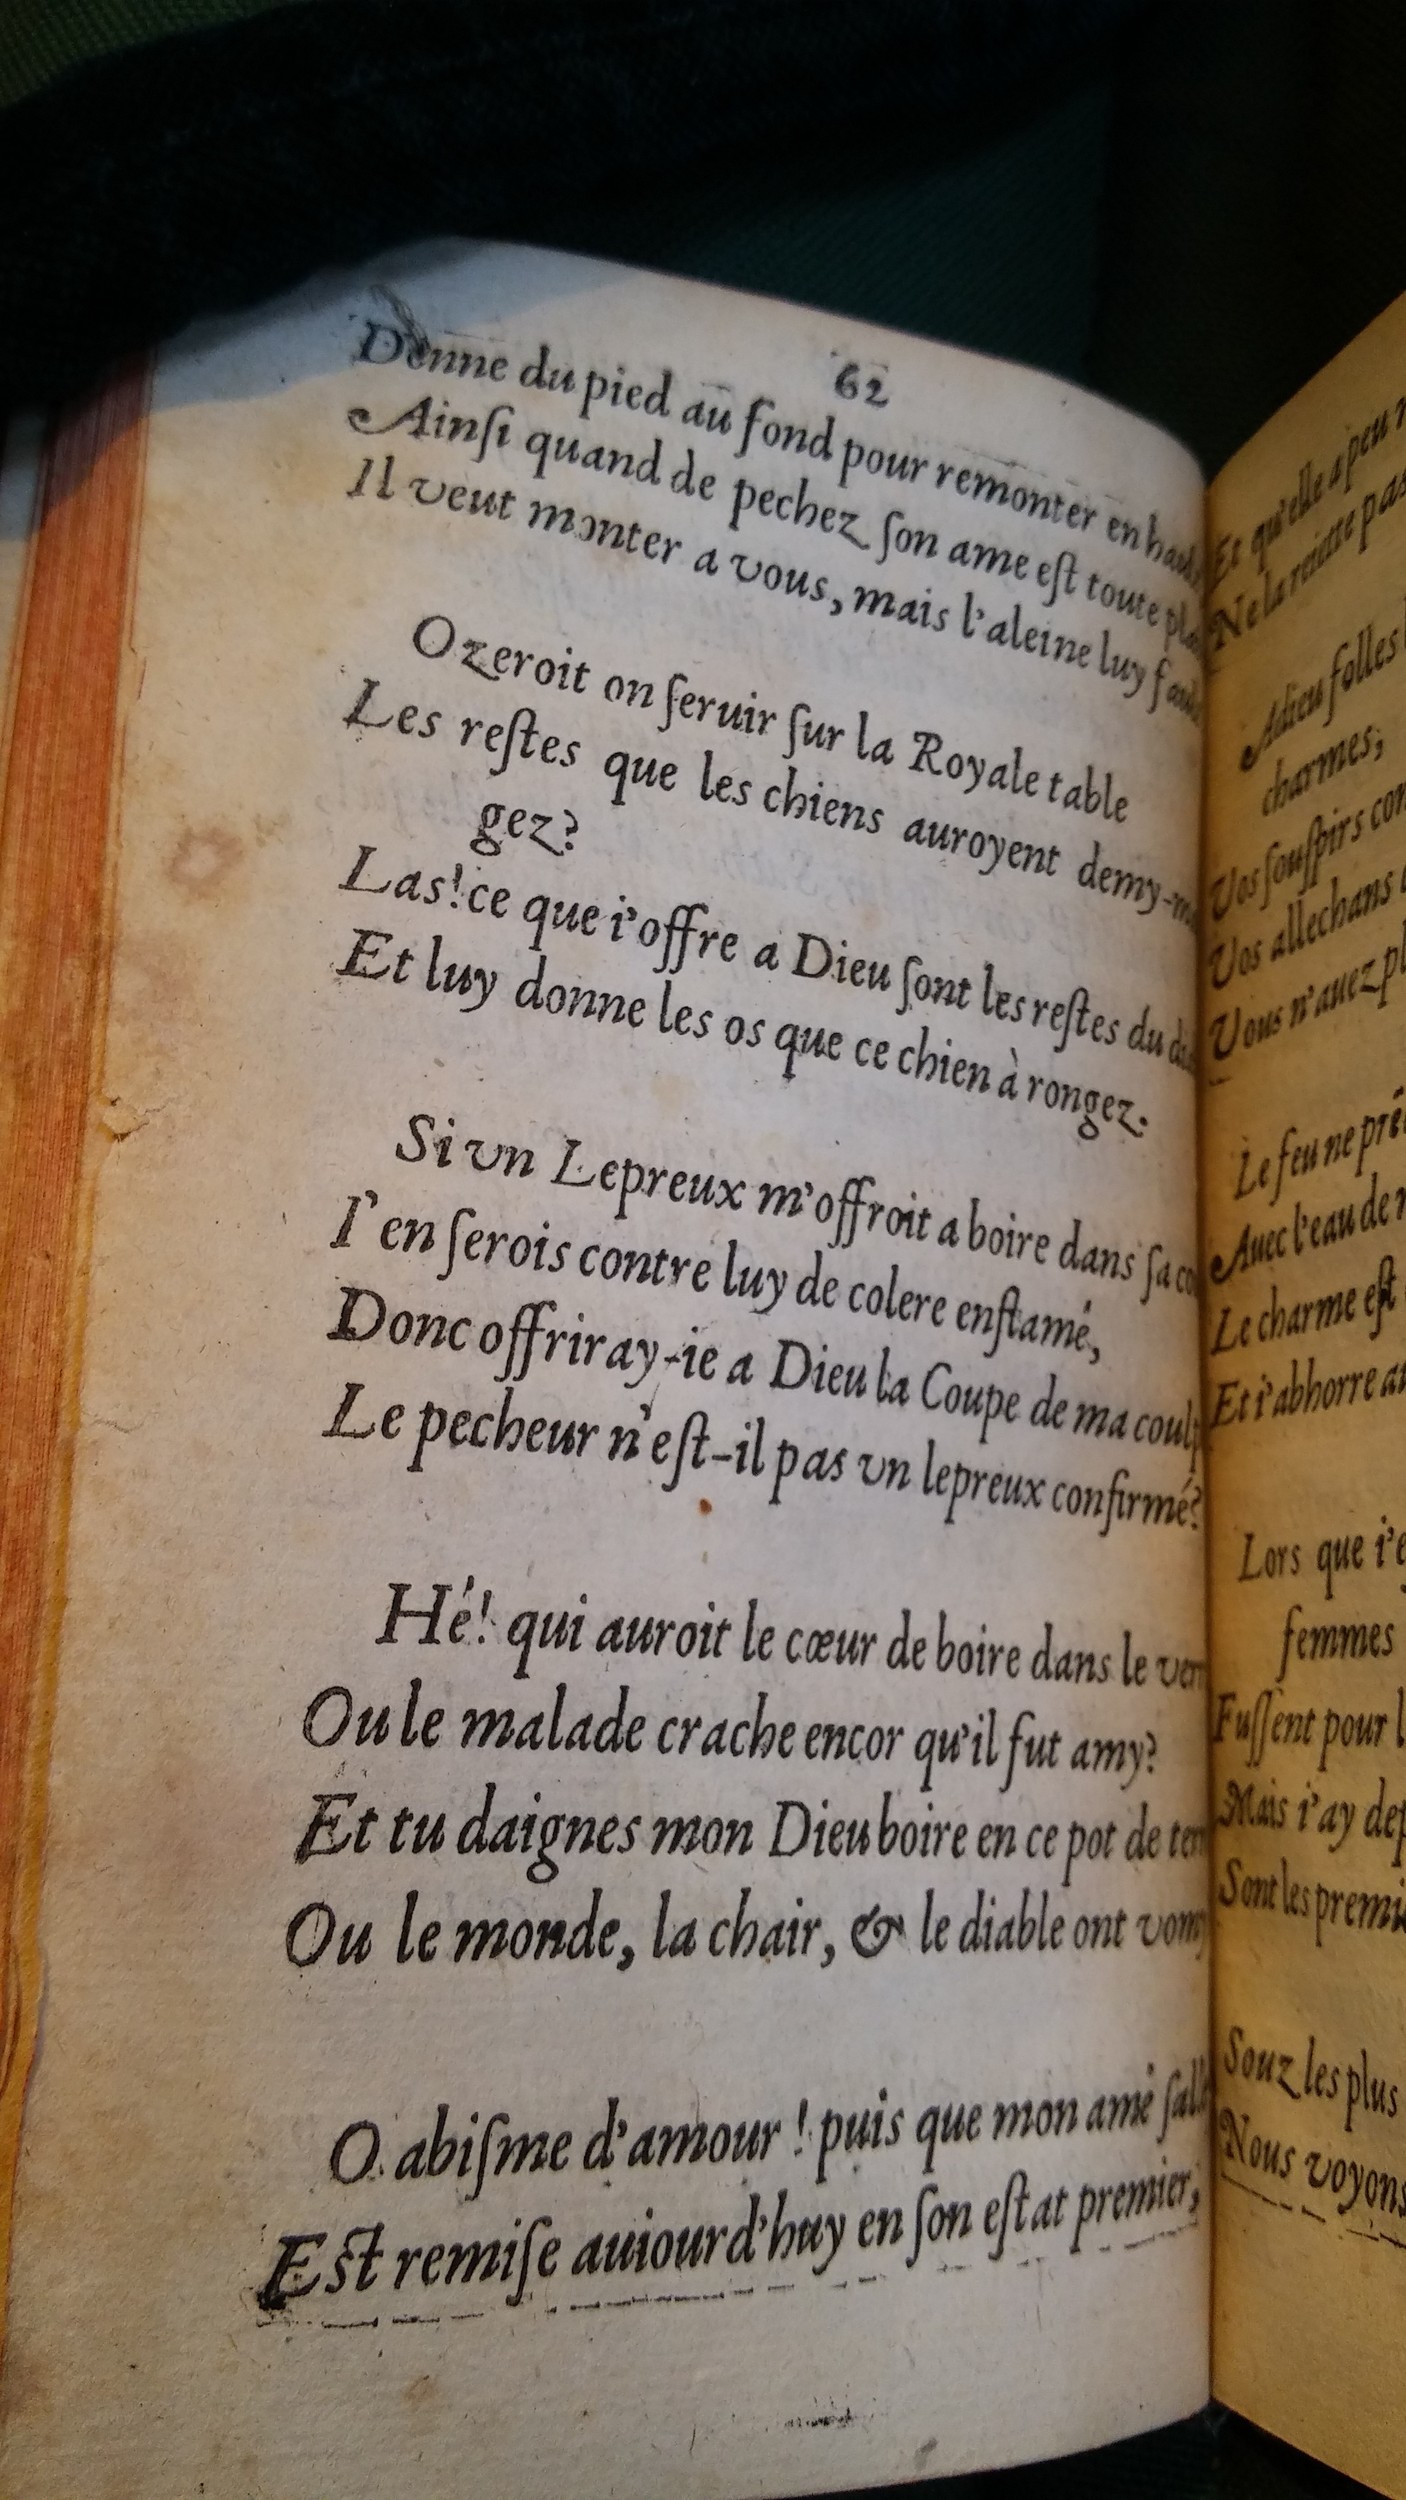 62
Donne du pied au fond pour remonter en
Ainſi quand de pechez ſon ame eſt toute
Il veut monter a vous, mais l'aleine luy
Ozeroit on ſeruir ſur la Royale table
Les reſtes que les chiens auroyent demy-
gez?
Las! ce que i'offre a Dieu ſont les reſtes du
Et luy donne les os que ce chien à rongez.
Si vn Lepreux m'offroit a boire dans ſa
I'en ſerois contre luy de colere enflamé,
Donc offriray-ie a Dieu la Coupe de ma
Le pecheur n'eſt-il pas vn lepreux confirmé?
Hé! qui auroit le cœur de boire dans le
Ou le malade crache encor qu'il fut amy?
Et tu daignes mon Dieu boire en ce pot de
Ou le monde, la chair, & le diable ont
O abiſme d'amour ! puis que mon ame
Est remiſe auiourd'huy en ſon eſtat premier,
Et qu'elle a peu
Ne la reiette pas
Adieu folles
charmes;
Vos ſouſpirs
Vos allechans
Vous n'auez
Le feu ne
Auec l'eau de
Le charme eſt
Et i'abhorre
Lors que
femmes
Fuſſent pour
Mais i'ay
Sont les
Souz les plus
Nous voyons